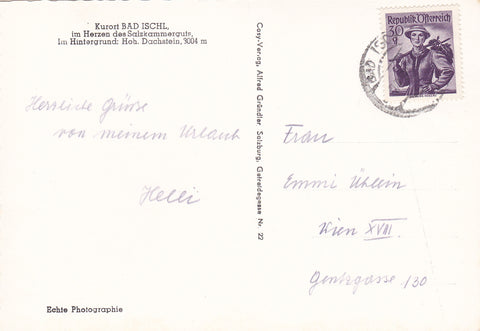 Kurort BAD ISCHL,
im Herzen des Salzkammerguts,
Im Hintergrund: Hoh. Dachstein, 3004 m
Herzliche Grüsse
von meinem Urlaub
Helli
Echte Photographie
Cosy-Verlag, Alfred Gründler, Salzburg, Getreidegasse Nr. 22
Republik Österreich
30
g
BAD ISC
Frau
Emmi Ühlein
Wien XVIII
Gentzgasse 130